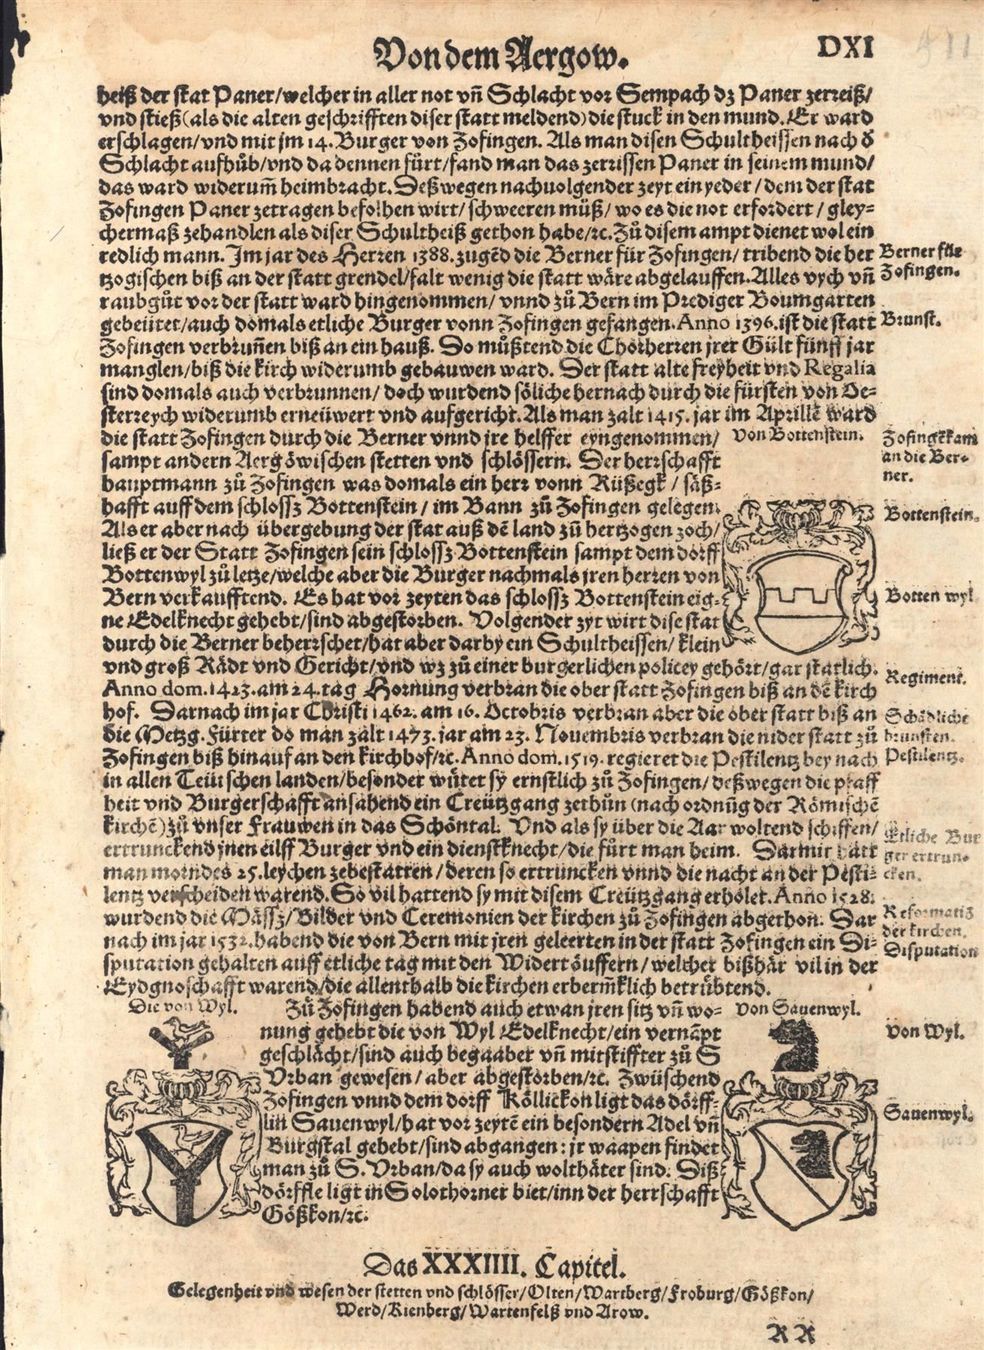 Von dem Aergow.
DXI
heiß der stat Paner/welcher in aller not vñ Schlacht vor Sempach dz Paner zerreiß/
vnd stieß (als die alten geschrifften diser statt meldend) die stuck in den mund. Er ward
erschlagen/vnd mit jm 14. Burger von Zofingen. Als man disen Schultheissen nach d̕
Schlacht aufhůb/vnd da dennen fürt/fand man das zerrissen Paner in seinem mund/
das ward widerum̃ heimbracht. Deßwegen nachuolgender zeyt ein yeder/dem der stat
Zofingen Paner zetragen befolhen wirt/schweeren můß/wo es die not erfordert/gley-
chermaß zehandlen als diser Schultheiß gethon habe/ꝛc. Zů disem ampt dienet wol ein
redlich mann. Im jar des Herren 1388. zugẽd die Berner für Zofingen/tribend die her
tzogischen biß an der statt grendel/falt wenig die statt wäre abgelauffen. Alles vych vñ
raubgůt vor der statt ward hingenommen/vnnd zů Bern im Prediger Boumgarten
gebeütet/auch domals etliche Burger vonn Zofingen gefangen. Anno 1396. ist die statt
Zofingen verbruñen biß an ein hauß. Do můßtend die Chorherren jrer Gült fünff jar
manglen/biß die kirch widerumb gebauwen ward. Der statt alte freyheit vnd Regalia
sind domals auch verbrunnen/doch wurdend söliche hernach durch die fürsten von Oe-
sterreych widerumb erneüwert vnd aufgericht. Als man zalt 1415. jar im Aprillẽ ward
die statt Zofingen durch die Berner vnnd jre helffer eyngenommen/
sampt andern Aergöwischen stetten vnd schlössern. Der herrschafft
hauptmann zů Zofingen was domals ein herr vonn Rüßegk/säß-
hafft auff dem schlossz Bottenstein/im Bann zů Zofingen gelegen.
Als er aber nach übergebung der stat auß dẽ land zů hertzogen zoch/
ließ er der Statt Zofingen sein schlossz Bottenstein sampt dem dorff
Bottenwyl zů letze/welche aber die Burger nachmals jren herren von
Bern verkaufftend. Es hat vor zeyten das schlossz Bottenstein eig-
ne Edelknecht gehebt/sind abgestorben. Volgender zyt wirt dise stat
durch die Berner beherrschet/hat aber darby ein Schultheissen/klein
vnd groß Rädt vnd Gericht/vnd wz zů einer burgerlichen policey gehört/gar statlich.
Anno dom. 1423. am 24. tag Hornung verbran die ober statt Zofingen biß an dẽ kirch
hof. Darnach im jar Christi 1462. am 16. Octobris verbran aber die ober statt biß an
die Metzg. Fürter do man zalt 1473. jar am 23. Nouembris verbran die nider statt zů
Zofingen biß hinauf an den kirchhof/ꝛc. Anno dom. 1519. regieret die Pestilentz bey nach
in allen Teütschen landen/besonder wůtet sy ernstlich zů Zofingen/deßwegen die pfaff
heit vnd Burgerschafft ansähend ein Creützgang zethůn (nach ordnũg der Römischẽ
kirchẽ) zů vnser Frauwen in das Schöntal. Vnd als sy über die Aar woltend schiffen/
ertrunckend jnen eilff Burger vnd ein dienstknecht/die fürt man heim. Darmit hatt
man morndes 25. leychen zebestatten/deren so ertruncken vnnd die nacht an der Pesti-
lentz verscheiden warend. So vil hattend sy mit disem Creützgang erholet. Anno 1528.
wurdend die Mässz/Bilder vnd Ceremonien der kirchen zů Zofingen abgethon. Dar
nach im jar 1532. habend die von Bern mit jren geleerten in der statt Zofingen ein Di-
sputation gehalten auff etliche tag mit den Widertöuffern/welcher bißhär vil in der
Eydgnoschafft warend/die allenthalb die kirchen erberm̃klich betrůbtend.
Zů Zofingen habend auch etwan jren sitz vñ wo-
nung gehebt die von Wyl Edelknecht/ein vernãpt
geschlächt/sind auch begaaber vñ mitstiffter zů S
Vrban gewesen/aber abgestorben/ꝛc. Zwüschend
Zofingen vnnd dem dorff Köllickon ligt das dörff-
lin Sauenwyl/hat vor zeytẽ ein besondern Adel vñ
Burgstal gehebt/sind abgangen: jr waapen findet
man zů S. Vrban/da sy auch wolthäter sind. Diß
dörffle ligt in Solothorner biet/inn der herrschafft
Gößkon/ꝛc.
Berner für
Zofingen.
Brunst.
Von Bottenstein.
Zofingẽ kam
an die Ber-
ner.
Bottenstein.
Botten wyl
Regiment.
Schädliche
brunsten.
Pestilentz.
Etliche Bur
ger ertrun-
cken.
Reformatiõ
der kirchen.
Disputation
Die von Wyl.
Von Sauenwyl.
Von Wyl.
Sauenwyl.
Das XXXIIII. Capitel.
Gelegenheit vnd wesen der stetten vnd schlösser/Olten/Wartberg/Froburg/Gößkon/
Werd/Kienberg/Wartenfelß vnd Arow.
RR